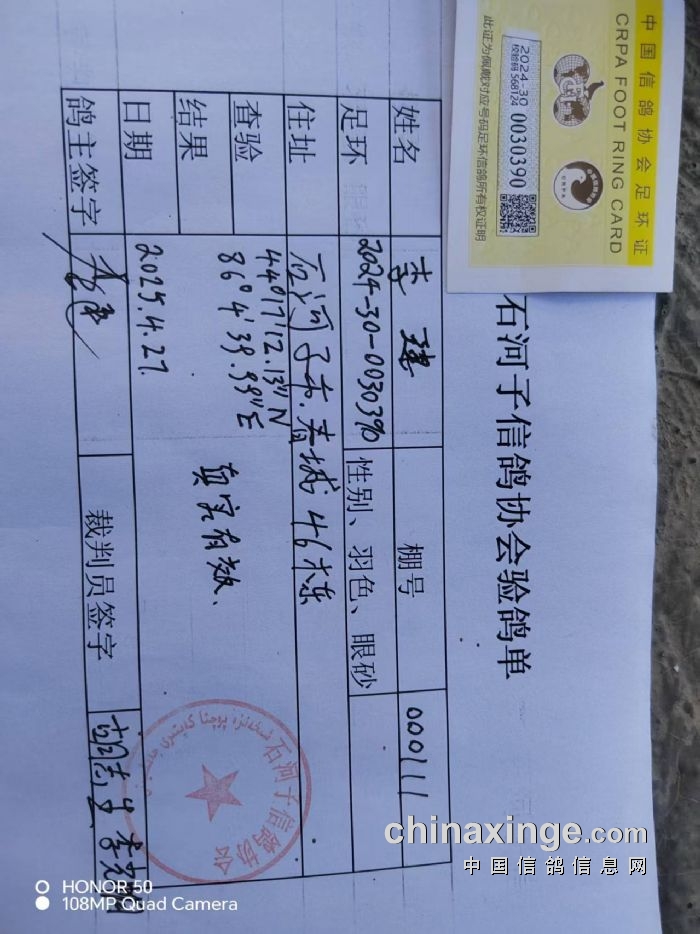 中国信鸽协会足环证
CRPA FOOT RING CARD
2024-30 0030390
校验码 568124
此证为佩戴对应号码足环信鸽所有权证明
石河子信鸽协会验鸽单
姓名 李建 棚号 000111
足环 2024-30-0030390 性别、羽色、眼砂
住址 石河子市.春城46栋
查验 44°17'12.13"N
86°4'39.99"E
结果 真实有效.
日期 2025.4.27.
鸽主签字 裁判员签字
石河子信鸽协会
chinaxinge.com
中国信鸽信息网
HONOR 50
108MP Quad Camera